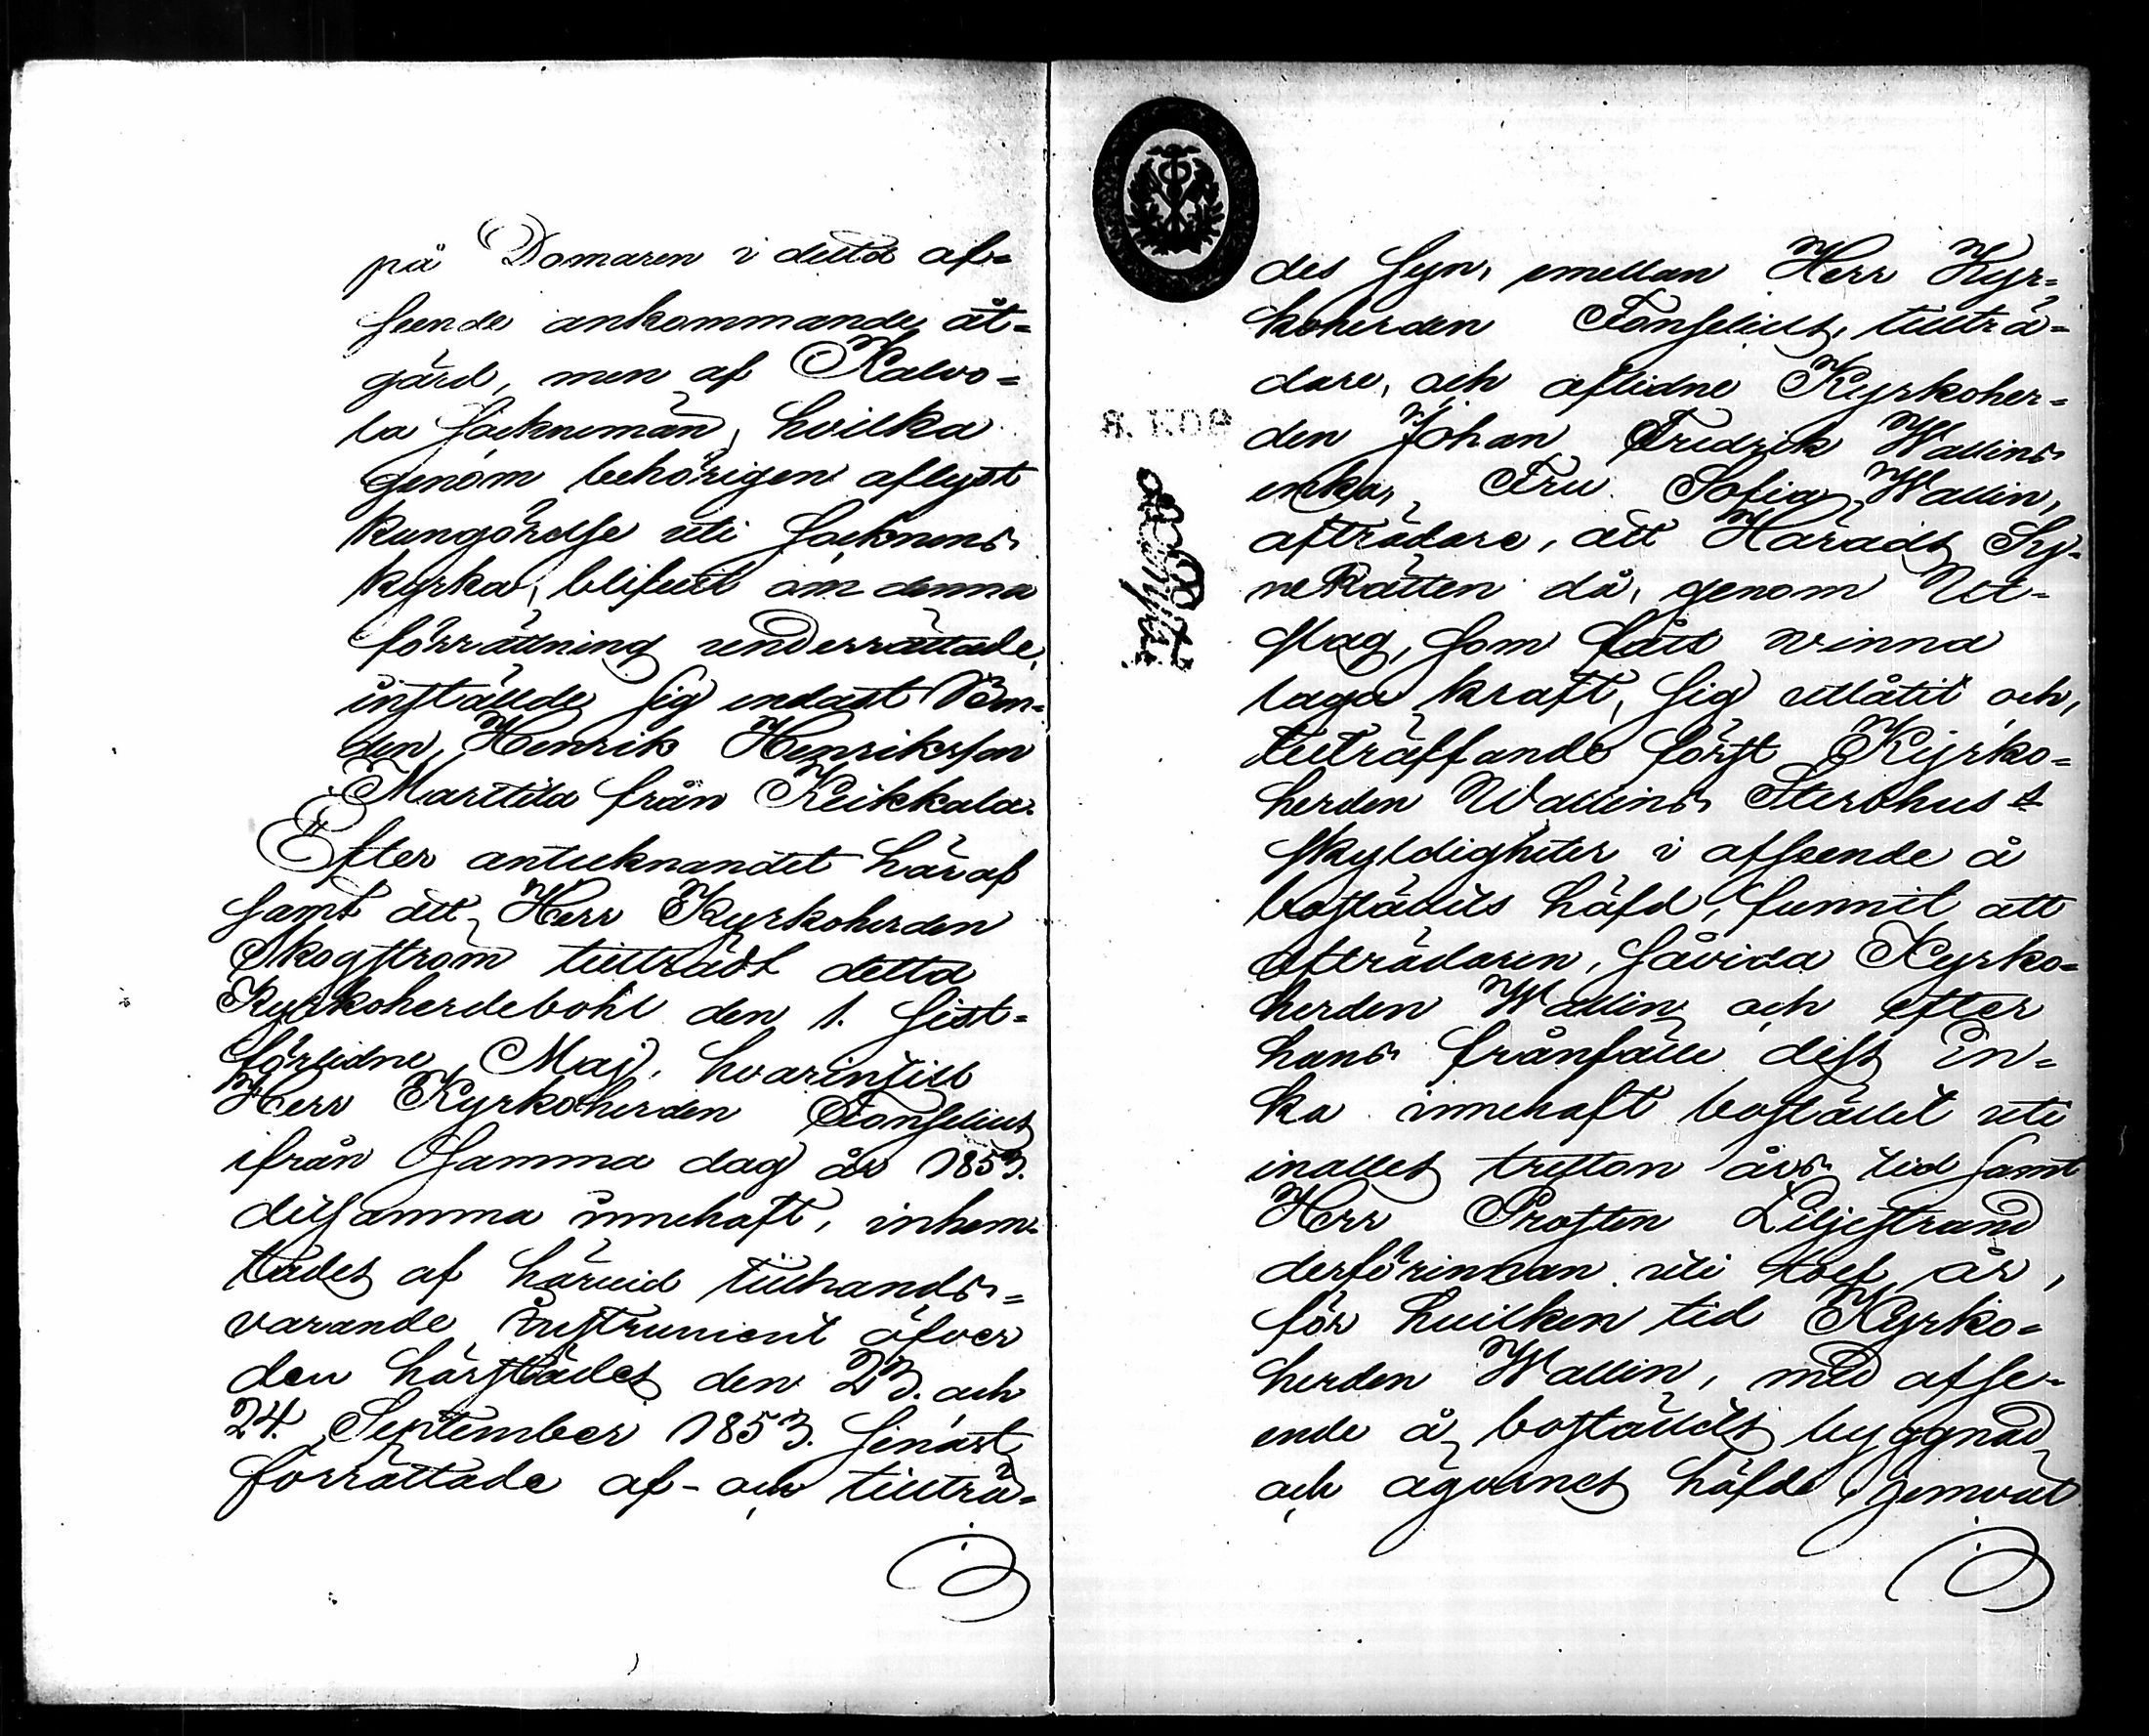 på Domaren i detta af-
seende ankommande åt-
gärd, men af Kalvo-
la Sockneman, hvilka
genom behörigen aflyst
kungörelse uti Socknens
kyrka, blifvit om denna
förrättning underrättade,
inställde sig endast Näm-
den, Henrik Henriksson
Marttila från Keikkala.
Efter antecknandet häraf
samt att Herr Kyrkoherden
Skogström tillträdt detta
Kyrkoherdebohl den 1. sist-
förlidne Maj, hvarintill
Herr Kyrkoherden Fonselius
ifrån samma dag år 1853.
detsamma innehaft, inhem-
tades af härvid tillhands-
varande Instrument öfver
den härstädes den 23. och
24. September 1853. senast
förrättade af- och tillträ-
des syn, emellan Herr Kyr-
koherden Fonselius, tillträ-
dare, och aflidne Kyrkoher-
den Johan Fredrik Wallins
enka, Fru Sofia Wallin,
afträdare, att Härads Sy-
ne Rätten då, genom Ut-
slag, som fått vinna
laga kraft, sig utlåtit och,
beträffande först Kyrko-
herden Wallins Sterbhus
skyldigheter i afseende å
boställets häfd, funnit att
afträdaren, såvida Kyrko-
herden Wallin och efter
hans frånfälle dess En-
ka innehaft bostället uti
inalles tretton års tid samt
Herr Prosten Liljestrand
derförinnan uti tolf år,
för hvilken tid Kyrko-
herden Wallin, med afse-
ende å boställets byggnad
och ägornes häfde, gemväl
8. KOP